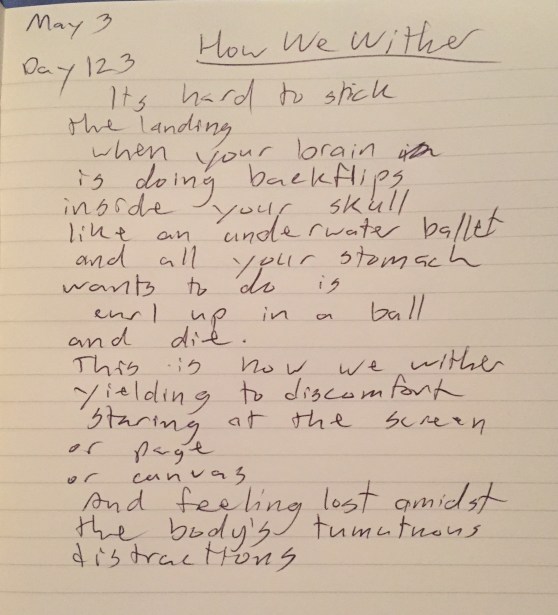 May 3
How We Wither
Day 123
Its hard to stick
the landing
when your brain
is doing backflips
inside your skull
like an underwater ballet
and all your stomach
wants to do is
curl up in a ball
and die.
This is how we wither
yielding to discomfort
staring at the screen
or page
or canvas
And feeling lost amidst
the body's tumutuous
distractions